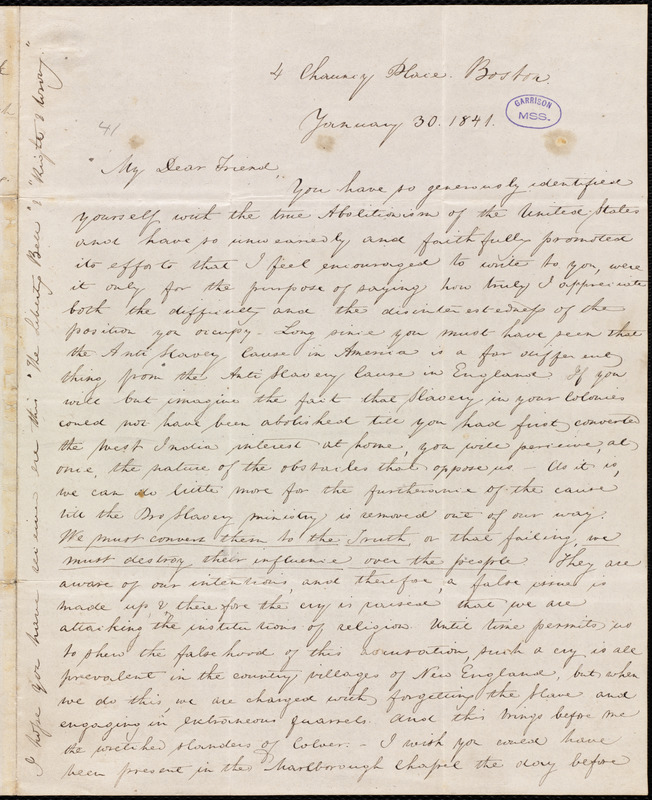 4 Chauncy Place. Boston
January 30. 1841.
GARRISON
MSS.
41
"My Dear Friend"
You have so generously identified
yourself with the true Abolitionism of the United States
and have so unweariedly and faithfully promoted
its efforts that I feel encouraged to write to you, were
it only for the purpose of saying how truly I appreciate
both the difficulty and the disinterestedness of the
position you occupy. Long since you must have seen that
the Anti Slavery Cause in America is a far different
thing from the Anti Slavery Cause in England If you
will but imagine the fact that Slavery in your Colonies
could not have been abolished till you had first converted
the West India interest at home, you will perceive, at
once, the nature of the obstacles that oppose us – As it is,
we can do little more for the furtherance of the cause
till the Pro Slavery ministry is removed out of our way.
We must convert them to the Truth, or that failing, we
must destroy their influence over the people They are
aware of our intentions, and therefore, a false issue is
made up & therefore the cry is raised that we are
attacking the institutions of religion. Until time permits us
to shew the falsehood of this accusation, such a cry is all
prevalent in the country villages of New England, but when
we do this, we are charged with forgetting the Slave and
engaging in extraneous quarrels. And this brings before me
the wretched slanders of Colver. – I wish you could have
been present in the Marlborough Chapel the day before
I hope you have received ere this "The Liberty Bell" & "Right &